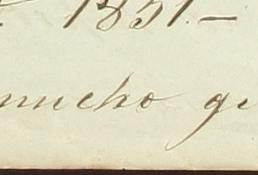 1851.—
mucho